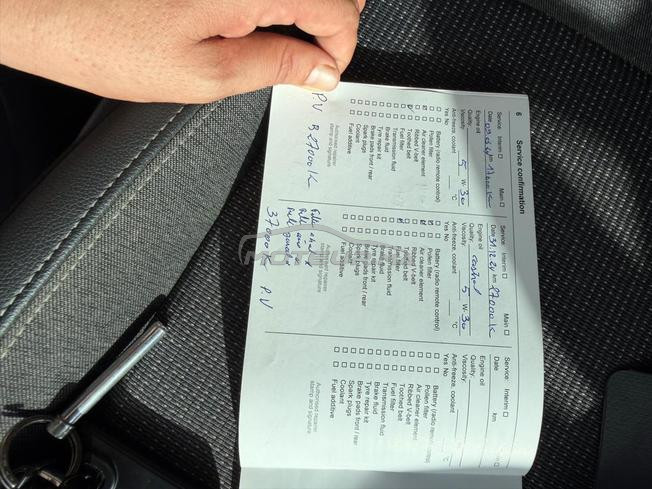 6 Service confirmation
Service: Interim ☐ Main ☐
Date km 17000K
Engine oil
Quality:
Viscosity: 5 W- 30
Anti-freeze, coolant °C
Yes No
Battery (radio remote control)
Pollen filter
Air cleaner element
Ribbed V-belt
Toothed belt
Fuel filter
Transmission fluid
Brake fluid
Tyre repair kit
Brake pads front / rear
Spark plugs
Coolant
Fuel additive
Authorised repairer
stamp and signature
P.V 27000K
Service: Interim ☐ Main ☐
Date 31.12.24 km 27000K
Engine oil
Quality: castrol
Viscosity: 5 W- 30
Anti-freeze, coolant °C
Yes No
Battery (radio remote control)
Pollen filter
Air cleaner element
Ribbed V-belt
Toothed belt
Fuel filter
Transmission fluid
Brake fluid
Tyre repair kit
Brake pads front / rear
Spark plugs
Coolant
Fuel additive
Authorised repairer
stamp and signature
37000K P.V
Service: Interim ☐ Main ☐
Date km
Engine oil
Quality:
Viscosity: W-
Anti-freeze, coolant °C
Yes No
Battery (radio remote control)
Pollen filter
Air cleaner element
Ribbed V-belt
Toothed belt
Fuel filter
Transmission fluid
Brake fluid
Tyre repair kit
Brake pads front / rear
Spark plugs
Coolant
Fuel additive
Authorised repairer
stamp and signature